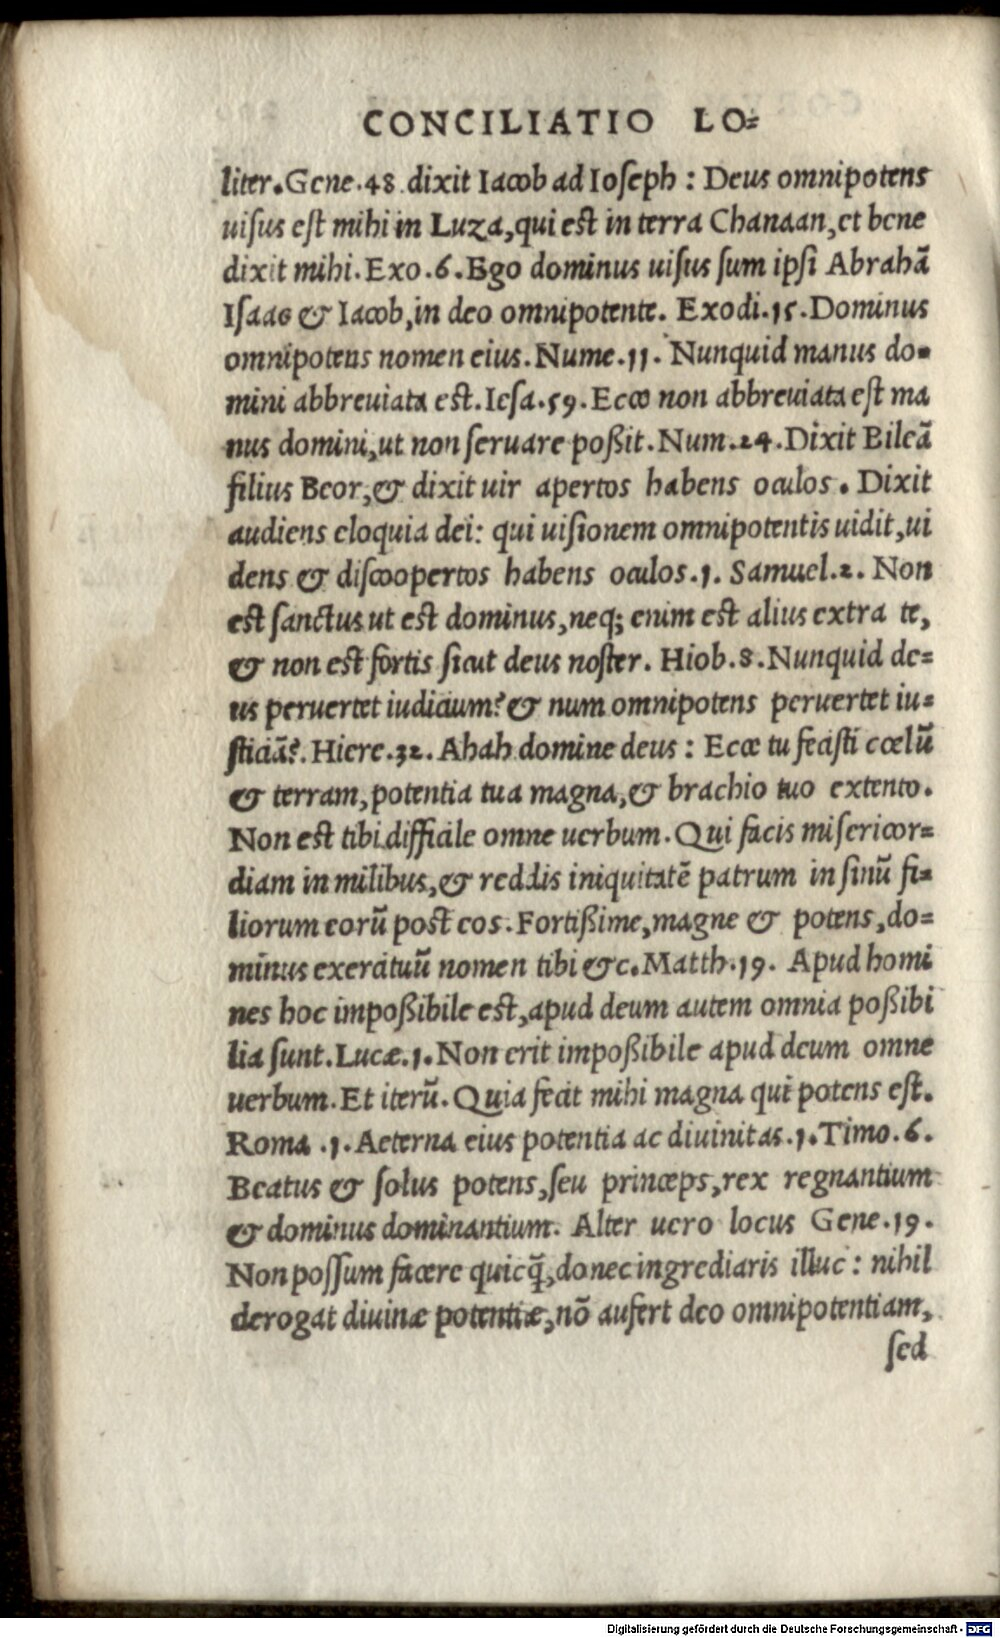 CONCILIATIO LO=
liter. Gene. 48. dixit Iacob ad Ioseph : Deus omnipotens
uisus est mihi in Luza, qui est in terra Chanaan, et bene
dixit mihi. Exo. 6. Ego dominus uisus sum ipsi Abrahã
Isaac & Iacob, in deo omnipotente. Exodi. 15. Dominus
omnipotens nomen eius. Nume. 11. Nunquid manus do=
mini abbreuiata est. Iesa. 59. Ecce non abbreuiata est ma
nus domini, ut non seruare poßit. Num. 24. Dixit Bileã
filius Beor, & dixit uir apertos habens oculos. Dixit
audiens eloquia dei: qui uisionem omnipotentis uidit, ui
dens & discoopertos habens oculos. 1. Samuel. 2. Non
est sanctus ut est dominus, neq; enim est alius extra te,
& non est fortis sicut deus noster. Hiob. 8. Nunquid de=
us peruertet iudicium? & num omnipotens peruertet iu=
sticiã?. Hiere. 32. Ahah domine deus : Ecce tu fecisti cœlũ
& terram, potentia tua magna, & brachio tuo extento.
Non est tibi difficile omne uerbum. Qui facis misericor=
diam in milibus, & reddis iniquitatẽ patrum in sinũ fi=
liorum eorũ post eos. Fortißime, magne & potens, do=
minus exercituũ nomen tibi &c. Matth. 19. Apud homi
nes hoc impoßibile est, apud deum autem omnia poßibi
lia sunt. Lucæ. 1. Non erit impoßibile apud deum omne
uerbum. Et iterũ. Quia fecit mihi magna qui potens est.
Roma . 1. Aeterna eius potentia ac diuinitas. 1. Timo. 6.
Beatus & solus potens, seu princeps, rex regnantium
& dominus dominantium. Alter uero locus Gene. 19.
Non possum facere quicq̃, donec ingrediaris illuc : nihil
derogat diuinæ potentiæ, nõ aufert deo omnipotentiam,
sed
Digitalisierung gefördert durch die Deutsche Forschungsgemeinschaft - DFG